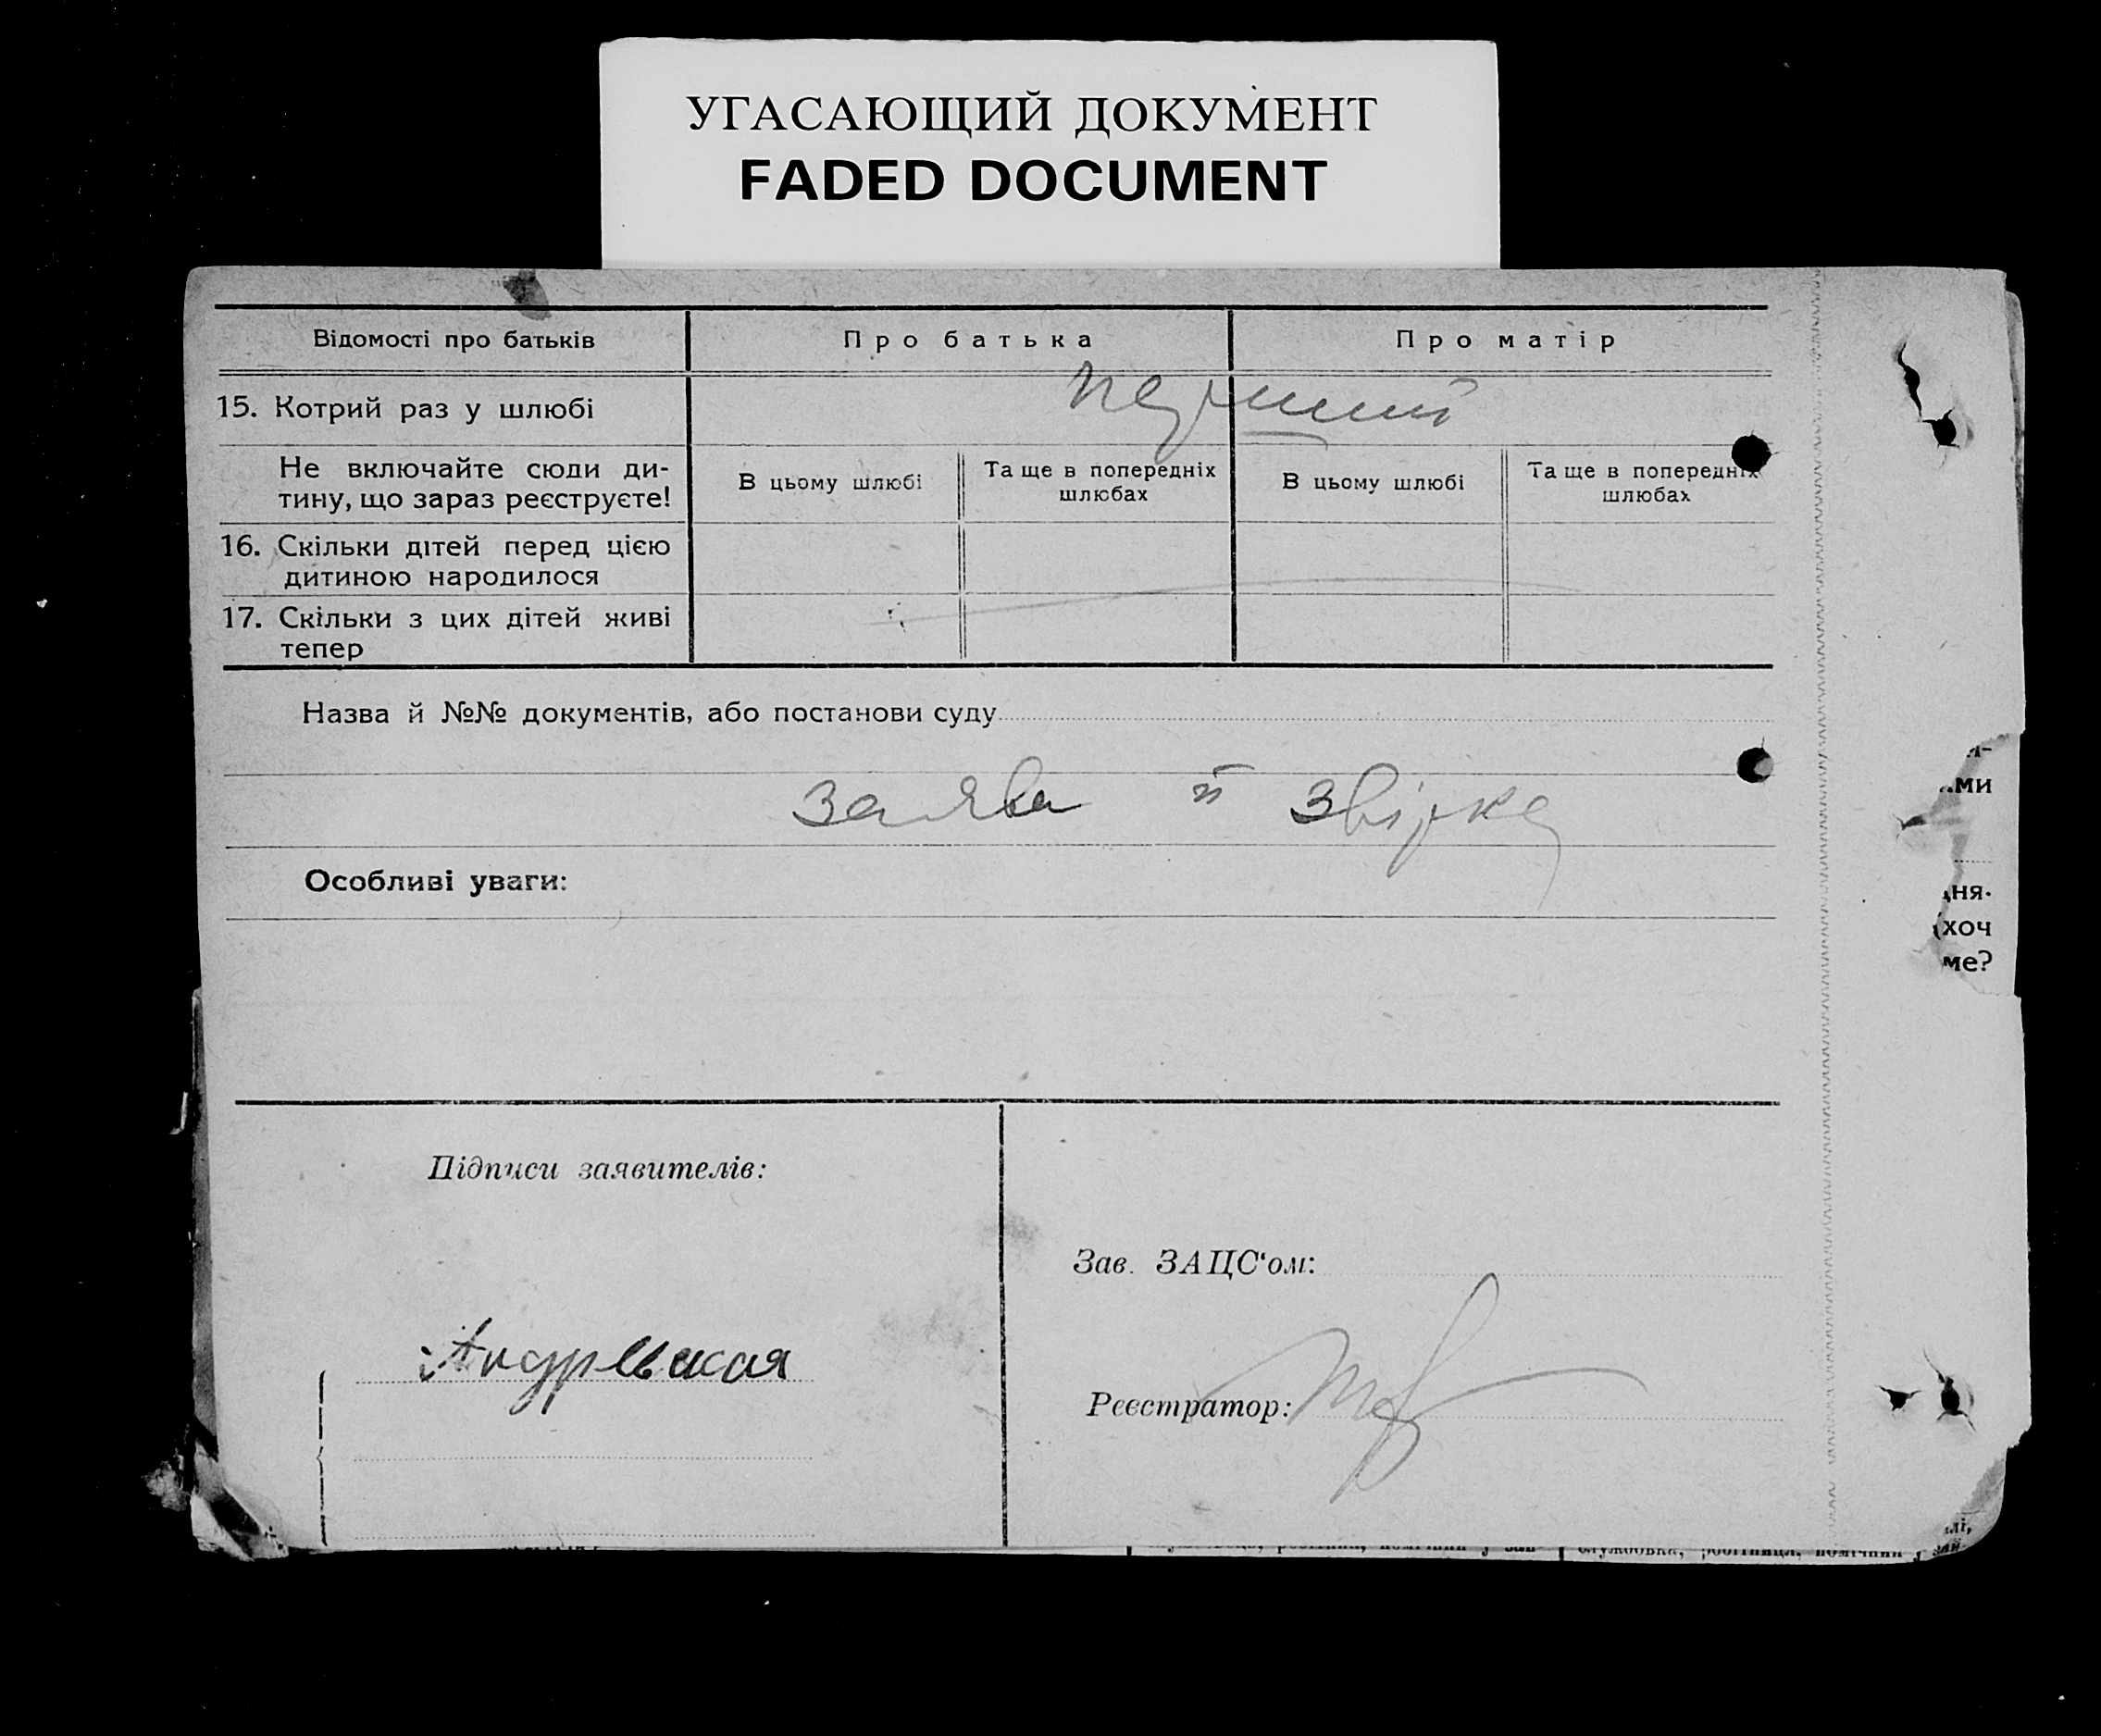 УГАСАЮЩИЙ ДОКУМЕНТ
FADED DOCUMENT
Відомості про батьків
Про батька
Про матір
15. Котрий раз у шлюбі
перший
Не включайте сюди ди-
тину, що зараз реєструєте!
В цьому шлюбі
Та ще в попередніх
шлюбах
В цьому шлюбі
Та ще в попередніх
шлюбах
16. Скільки дітей перед цією
дитиною народилося
17. Скільки з цих дітей живі
тепер
Назва й №№ документів, або постанови суду
заява й звірка
Особливі уваги:
Підписи заявителів:
Андревская
Зав. ЗАЦС‘ом:
Реєстратор:
ми
ня.
(хоч
ме?